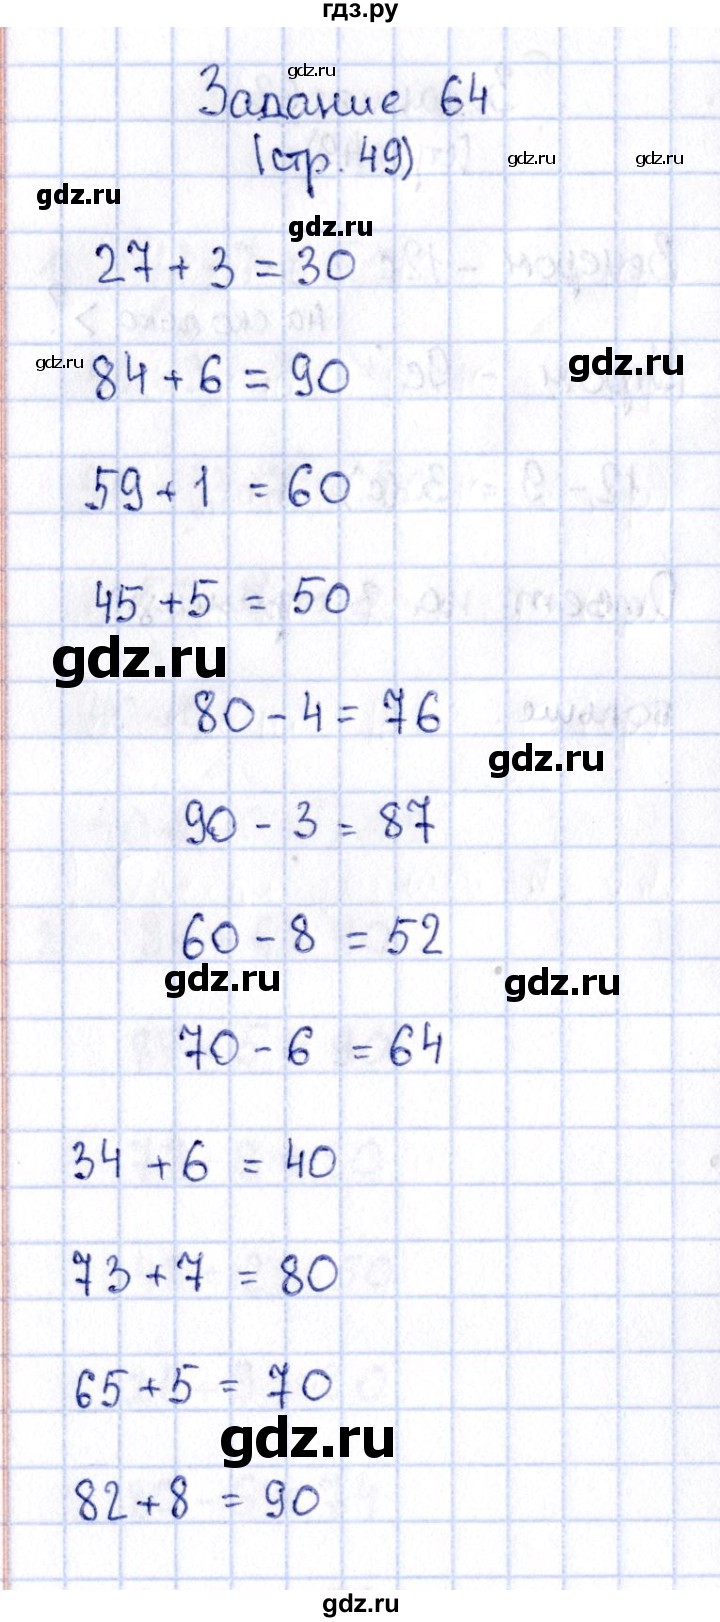 гдз.ру
gdz.ru
Задание 64
(стр. 49)
gdz.ru
gdz.ru
gdz.ru
gdz.ru
27 + 3 = 30
gdz.ru
gdz.ru
84 + 6 = 90
59 + 1 = 60
45 + 5 = 50
gdz.ru
80 - 4 = 76
gdz.ru
90 - 3 = 87
60 - 8 = 52
gdz.ru
gdz.ru
70 - 6 = 64
34 + 6 = 40
73 + 7 = 80
65 + 5 = 70
gdz.ru
82 + 8 = 90
gdz.ru